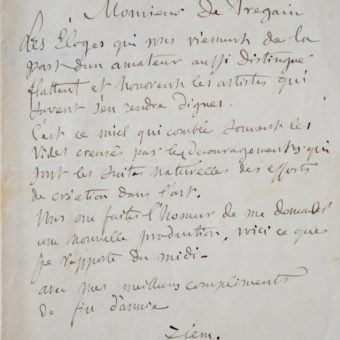 Monsieur de Tregain
Les Eloges qui nous viennent de la
part d'un amateur aussi distingué
flattent et honorent les artistes qui
savent s'en rendre dignes.
C'est ce miel qui comble souvent les
vides creusés par le découragement qui
sont les suites naturelles des efforts
de création dans l'art.
Vous me faites l'honneur de me demander
une nouvelle production, voici ce que
je rapporte du midi.
avec mes meilleurs compliments
de fin d'année
Ziem.